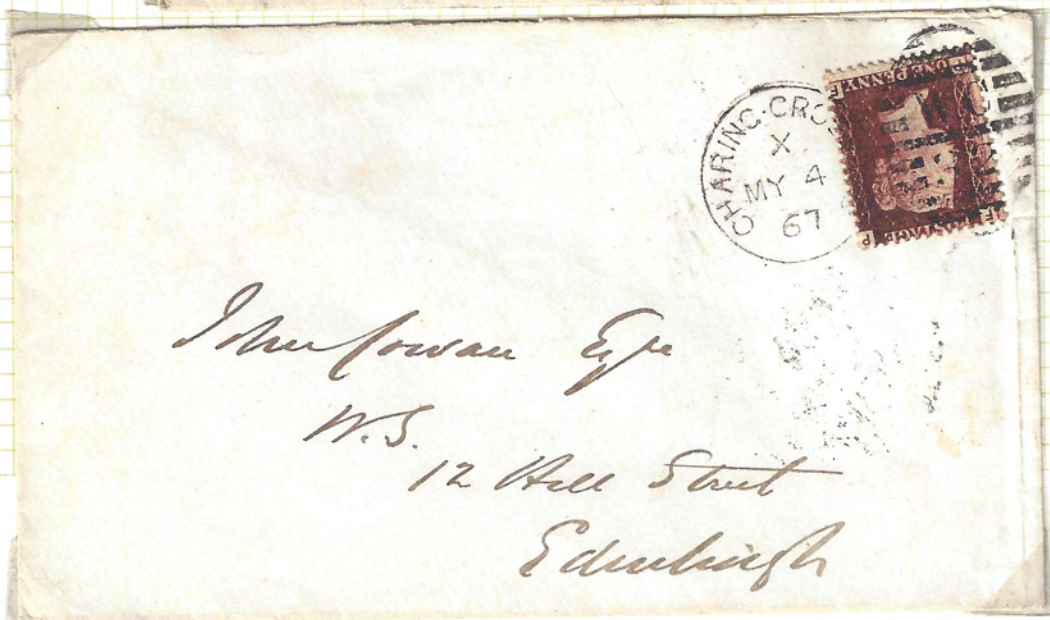 CHARING·CROSS
X
MY 4
67
ONE PENNY
POSTAGE
John Cowan Esqre
W.S.
12 Hill Street
Edinburgh